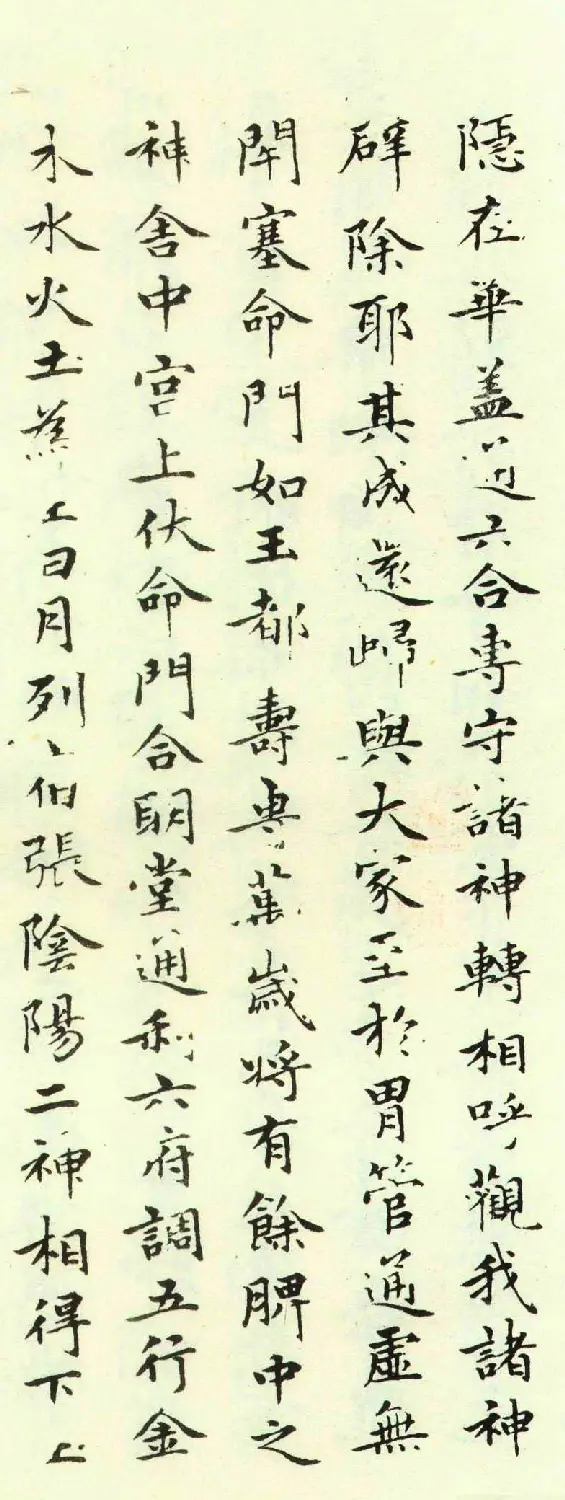 隱在華盖通六合專守諸神轉相呼觀我諸神
辟除耶其成還歸與大家至於胃管通虛無
閉塞命門如王都壽專萬歲將有餘脾中之
神舍中宮上伏命門合明堂通利六府調五行金
木水火土為日月列宿張陰陽二神相得下上